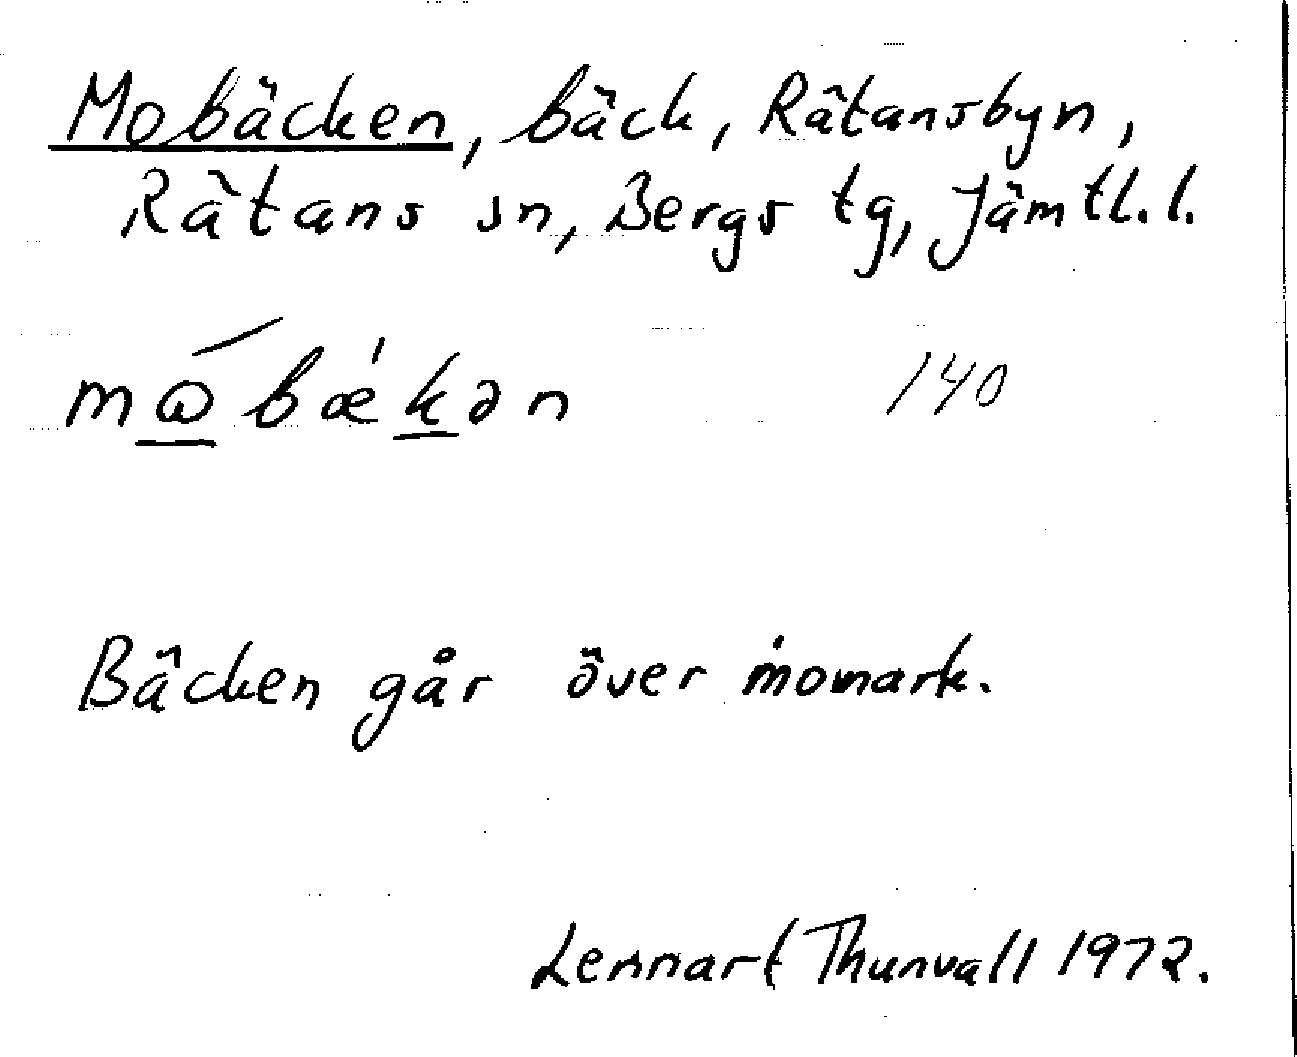 Mobäcken, bäck, Rätansbyn,
Rätans sn, Bergs tg, Jämtl.l.
mώ̲bæ̍k̲ən 140
Bäcken går över momark.
Lennart Thunvall 1972.